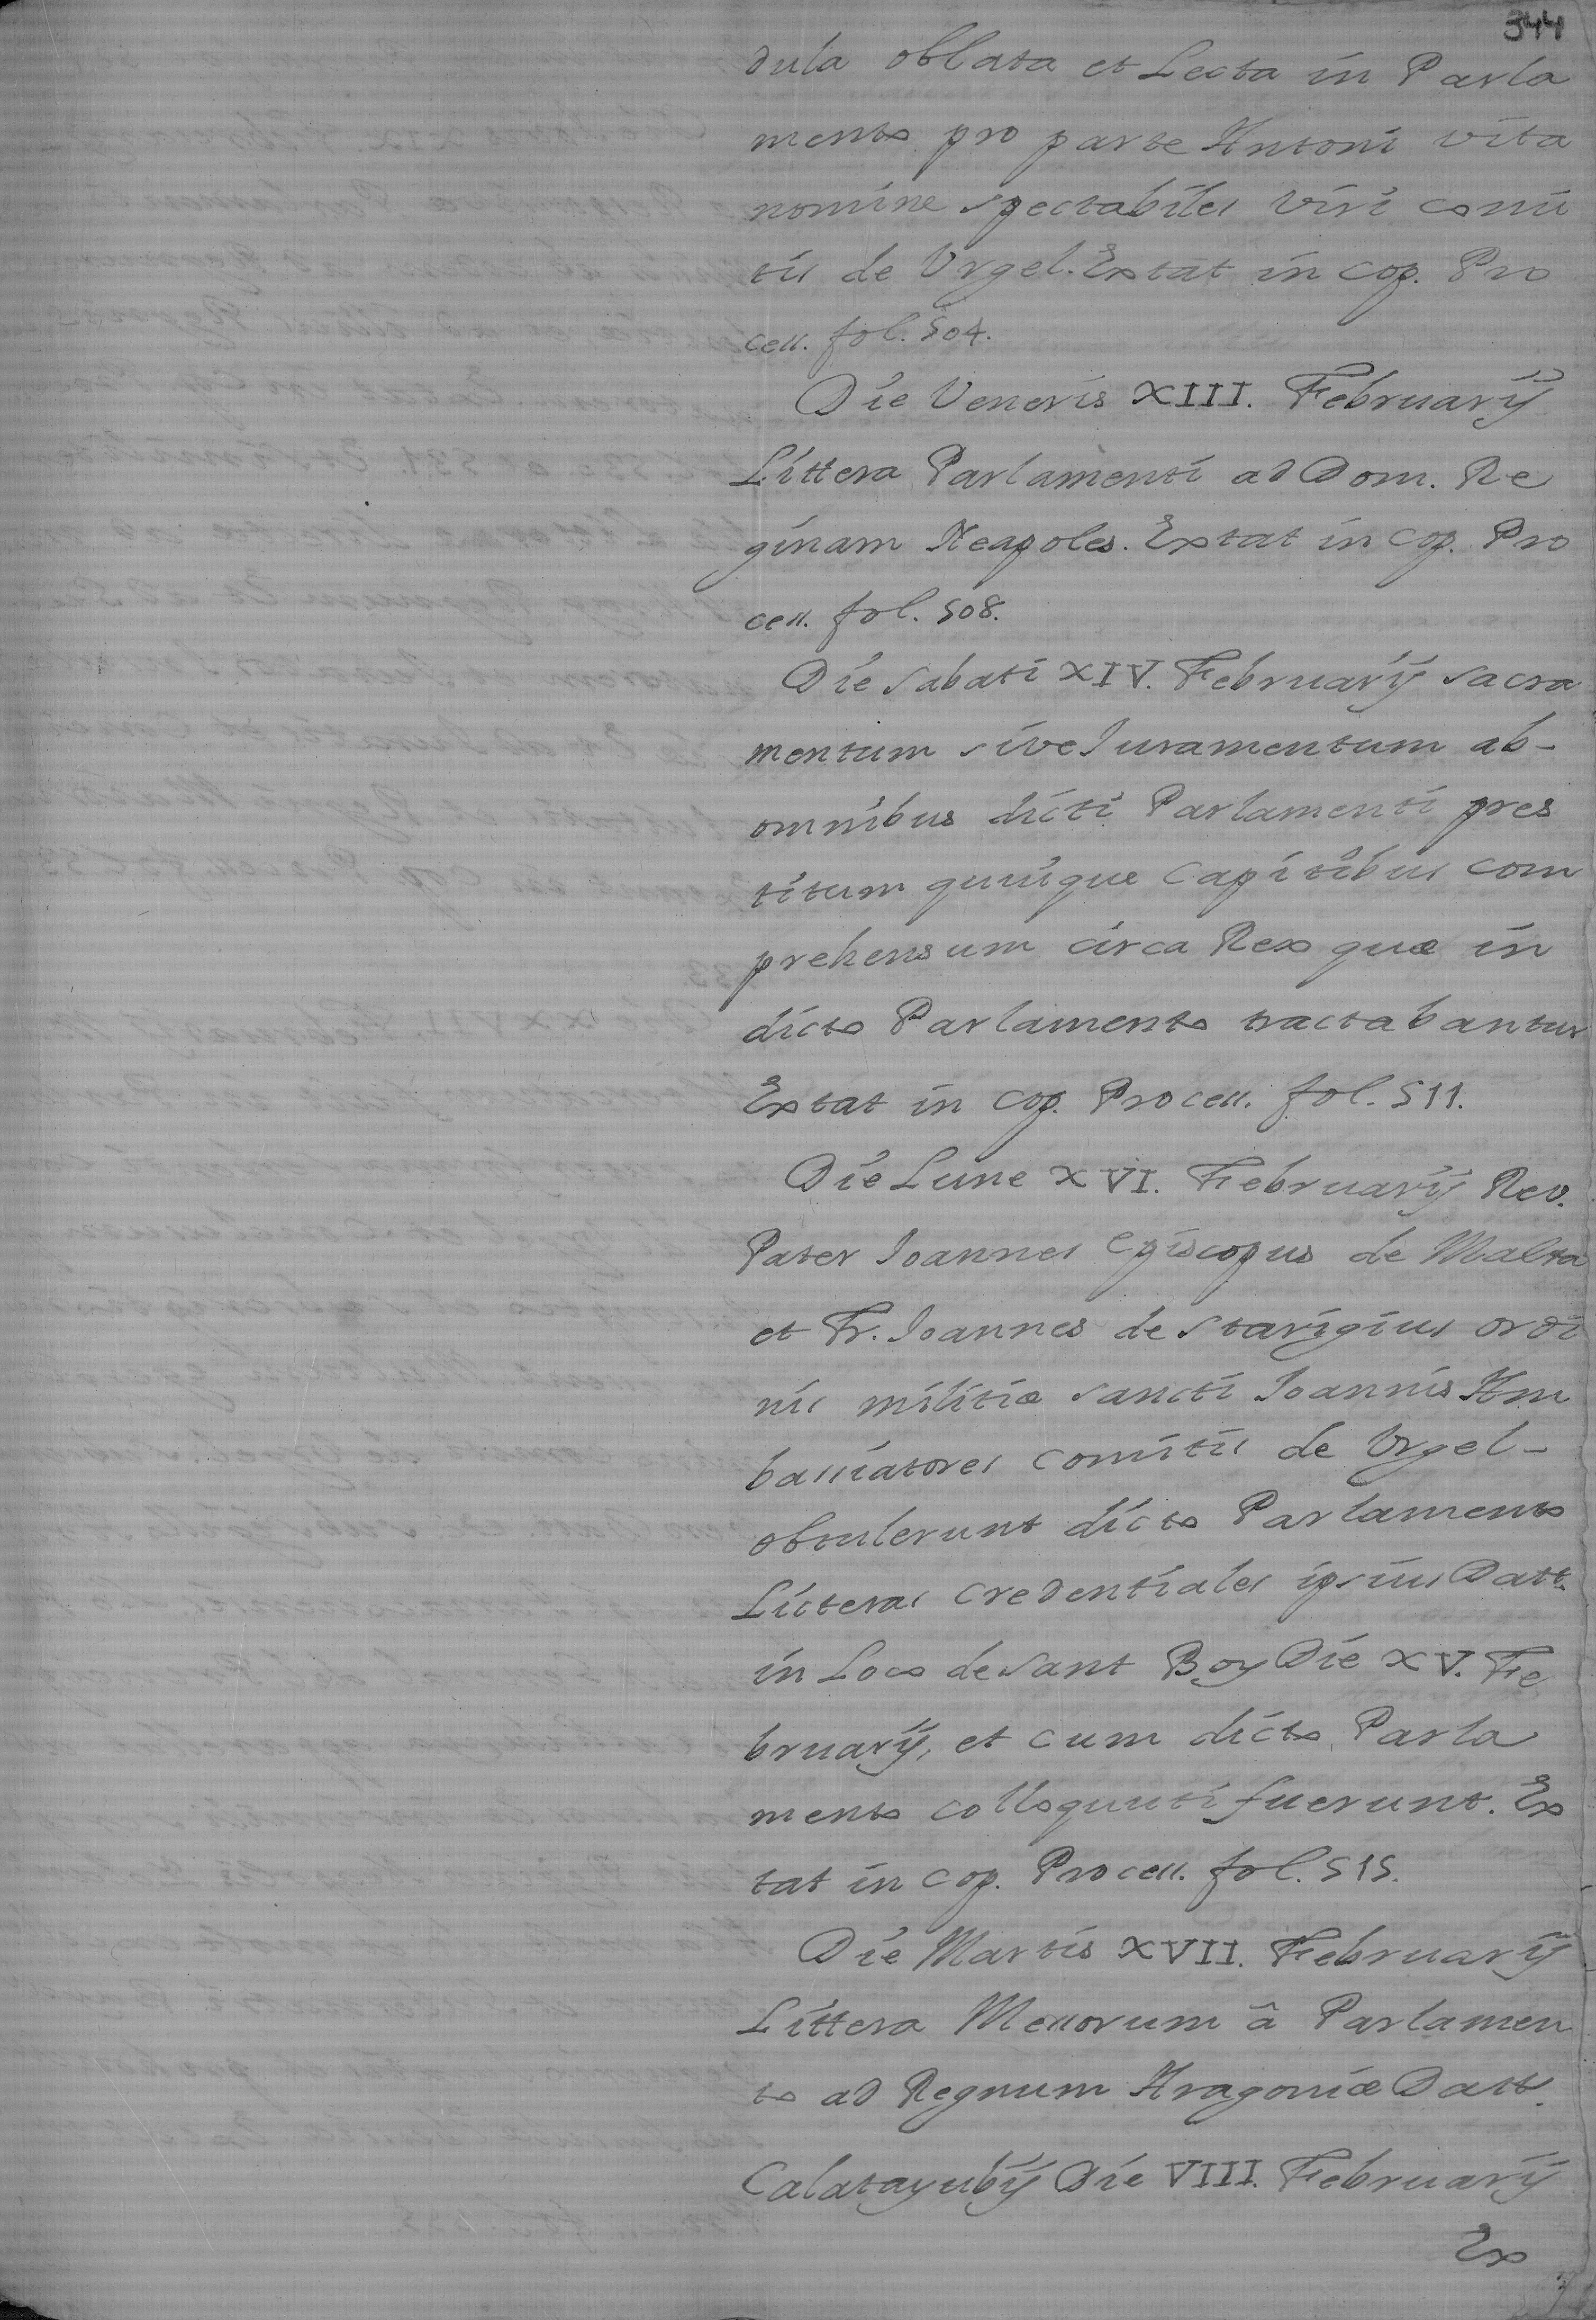 344
dula oblata et Lecta in Parla
mento pro parte Antoni vita
nomine spectabiles viri comi
tis de Vrgel. Extat in cop. Pro
cess. fol. 504.
Die Veneris XIII. Februarÿ
Littera Parlamenti ad Dom. Re
ginam Neapoles. Extat in cop. Pro
cess. fol. 508.
Die sabati XIV. Februarÿ sacra
mentum sive Juramentum ab-
omnibus dicti Parlamenti pres
titum quinque capitibus com
prehensum circa Rex quæ in
dicto Parlamento tractabantur
Extat in cop. Process. fol. 511.
Die Lune XVI. Februarÿ Rev.
Pater Joannes episcopus de Malta
et Fr. Joannes de starigius ordi
nis militiæ sancti Joannis Am
bassiatores comitis de Vrgel-
obtulerunt dicto Parlamento
Licteras credentiales ipsius Datt.
in Loco de sant Boy Die XV. Fe
bruarÿ, et cum dicto Parla
mento colloquuti fuerunt. Ex
tat in cop. Process. fol. 515.
Die Martis XVII. Februarÿ
Littera Messorum â Parlamen
to ad Regnum Aragoniæ Datt.
Calatayubÿ Die VIII. Februarÿ
Ex